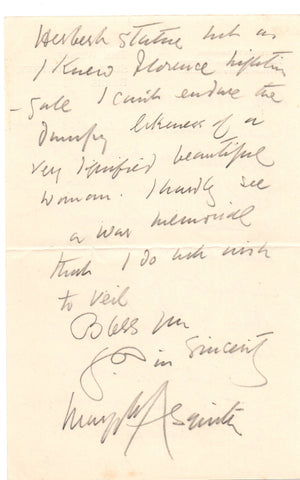 Herbert Statue but as
I knew Florence Nightin
-gale I can't endure the
Dumpy likeness of a
very dignified beautiful
woman. I hardly see
a war memorial
that I do not wish
to veil
Bless you
in Sincerity
Margot Asquith